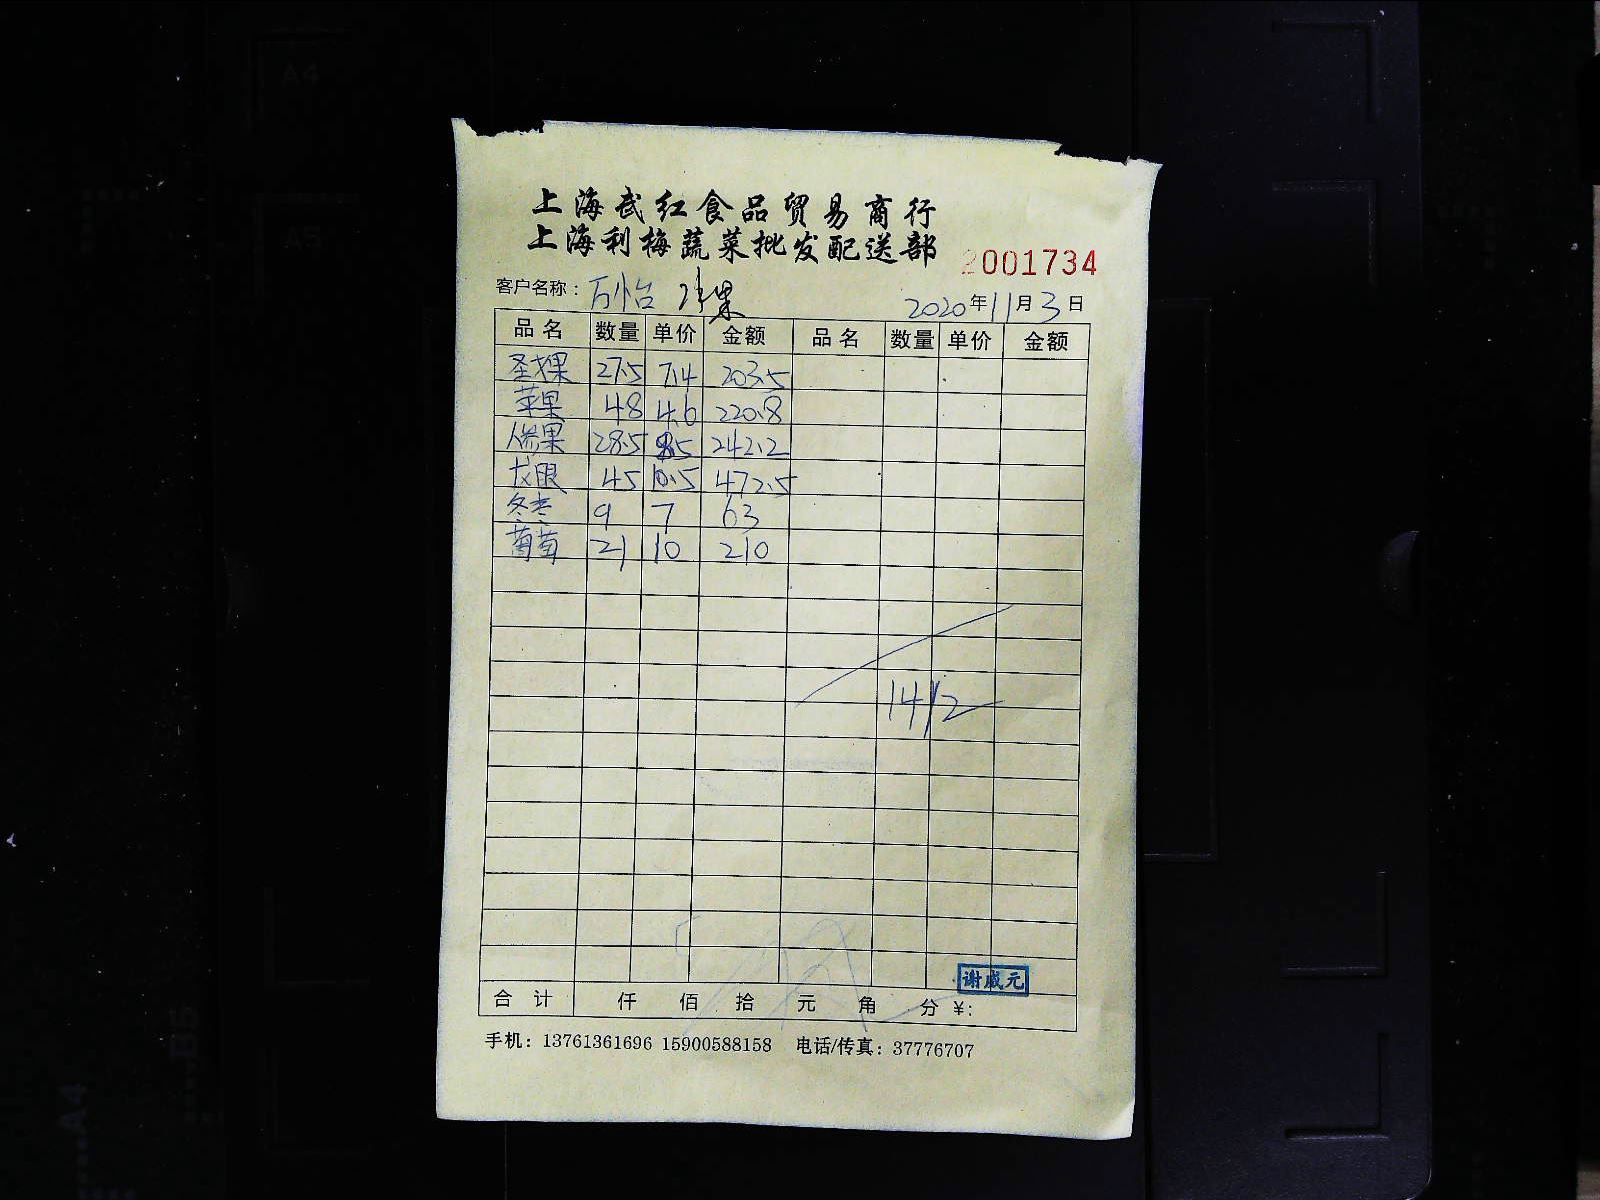 上海武红食品贸易商行
上海利梅蔬菜批发配送部
2001734
客户名称：万怡 水果
2020年11月3日
品名 数量 单价 金额 品名 数量 单价 金额
圣果 27.5 7.4 203.5
苹果 48 4.6 220.8
人参果 28.5 8.5 242.2
龙眼 45 10.5 472.5
冬枣 9 7 63
葡萄 21 10 210
1412
谢成元
合计 仟 佰 拾 元 角 分 ¥:
手机：13761361696 15900588158 电话/传真：37776707
A4
A5
B5
A4